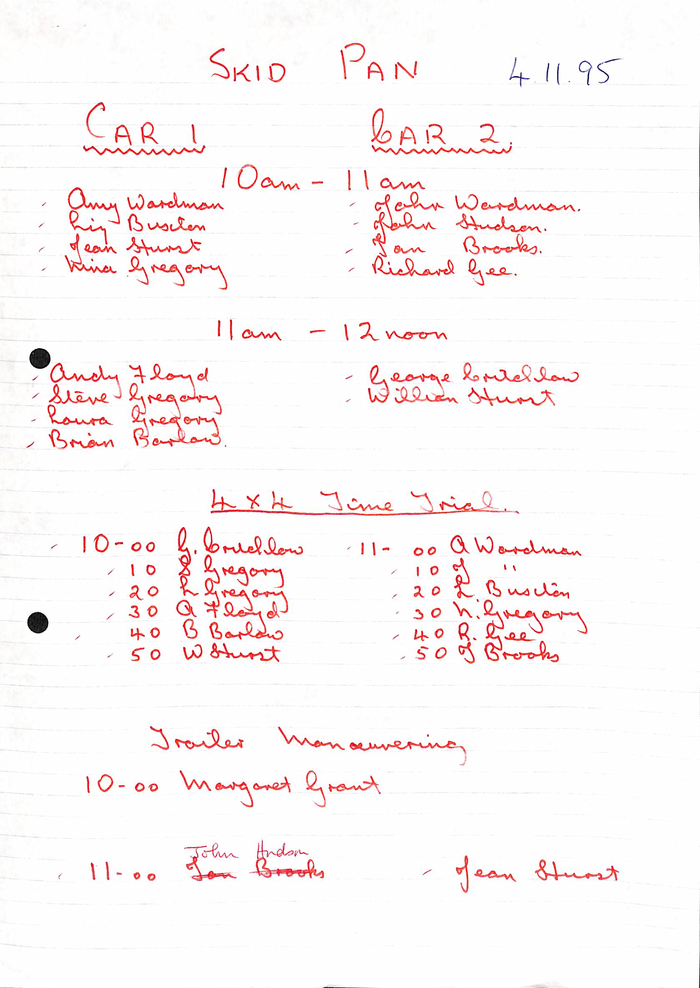 SKID PAN 4.11.95
CAR 1 CAR 2
10am - 11am
Amy Wardman John Wardman.
Liz Buxton John Hudson.
Jean Hurst Ian Brooks.
Nina Gregory Richard Gee.
11am - 12 noon
Andy Floyd George Critchlow
Steve Gregory William Hurst
Laura Gregory
Brian Barlow.
4x4 Time Trial.
10-00 G. Critchlow 11-00 A Wardman
10 S Gregory 10 J "
20 L Gregory 20 L. Buxton
30 A Floyd 30 N. Gregory
40 B Barlow 40 R. Gee
50 W Hurst 50 I Brooks
Trailer Manoeuvering
10-00 Margaret Grant
John Hudson
11-00 Ian Brooks Jean Hurst